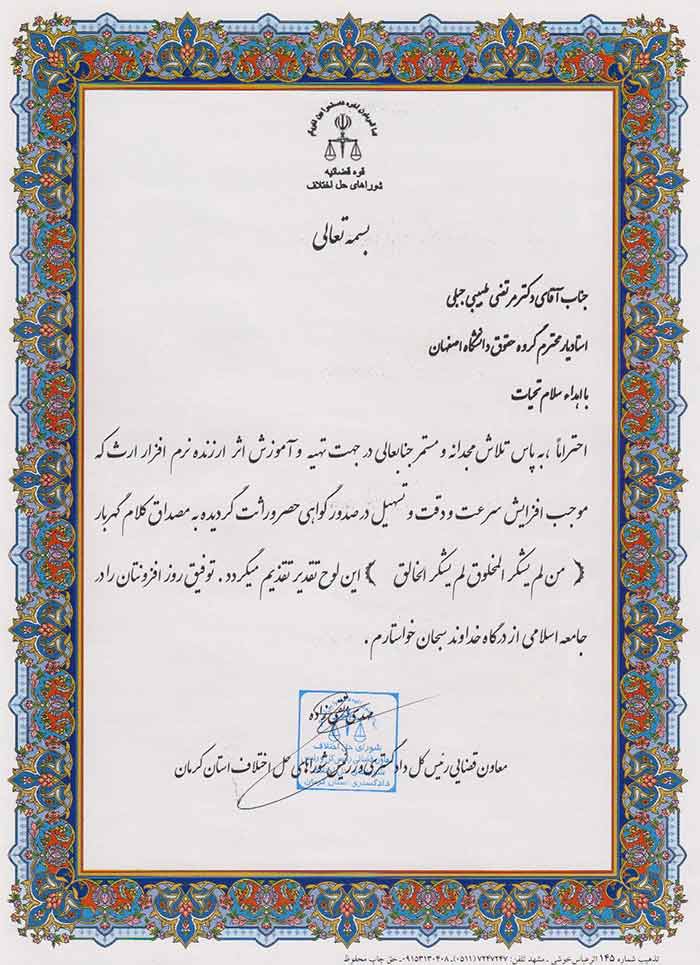 قوه قضائیه
شوراهای حل اختلاف
بسمه تعالی
جناب آقای دکتر مرتضی طبیبی جبلی
استادیار محترم گروه حقوق دانشگاه اصفهان
با اهداء سلام تحیات
احتراماً ،به پاس تلاش مجدانه و مستمر جنابعالی در جهت تهیه و آموزش اثر ارزنده نرم افزار ارث که
موجب افزایش سرعت و دقت و تسهیل در صدور گواهی حصر وراثت گردیده به مصداق کلام گهربار
﴿ من لم یشکر المخلوق لم یشکر الخالق ﴾ این لوح تقدیر تقدیم میگردد . توفیق روز افزونتان را در
جامعه اسلامی از درگاه خداوند سبحان خواستارم .
مهدی
شورای حل اختلاف
دادگستری استان کرمان
معاون قضایی رئیس کل دادگستری و رئیس شوراهای حل اختلاف استان کرمان
تذهیب شماره ۱۴۵ اثر عباس خوشی ـ مشهد تلفن: ۷۲۴۷۲۴۷ (۰۵۱۱)ـ ۰۹۱۵۳۱۳۰۴۰۸ـ حق چاپ محفوظ